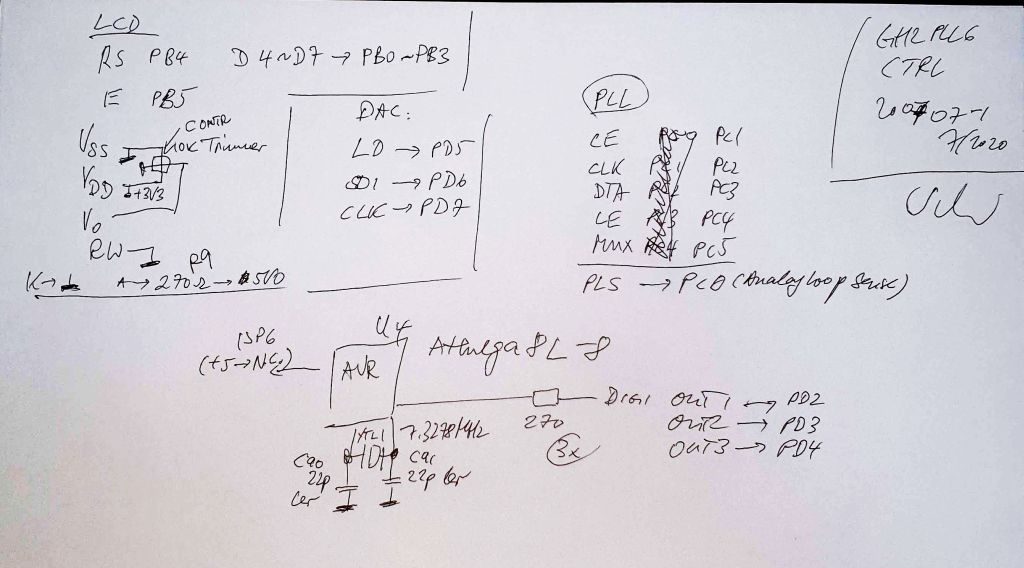 LCD
RS PB4 D4~D7 → PB0~PB3
E PB5
VSS
CONTR
10K Trimmer
VDD +3V3
V0
RW
K→ A → 270Ω → 5V0
R9
DAC:
LD → PD5
SDI → PD6
CLK → PD7
PLL
CE PC1
CLK PC2
DTA PC3
LE PC4
MUX PC5
PLS → PC0 (Analog Loop Sense)
CTRL
07-1
7/2020
U4
ISP6
(+5→NC)
AVR
ATmega8L-8
270
3x
DIGI OUT1 → PD2
OUT2 → PD3
OUT3 → PD4
22p
Cer
22p Cer